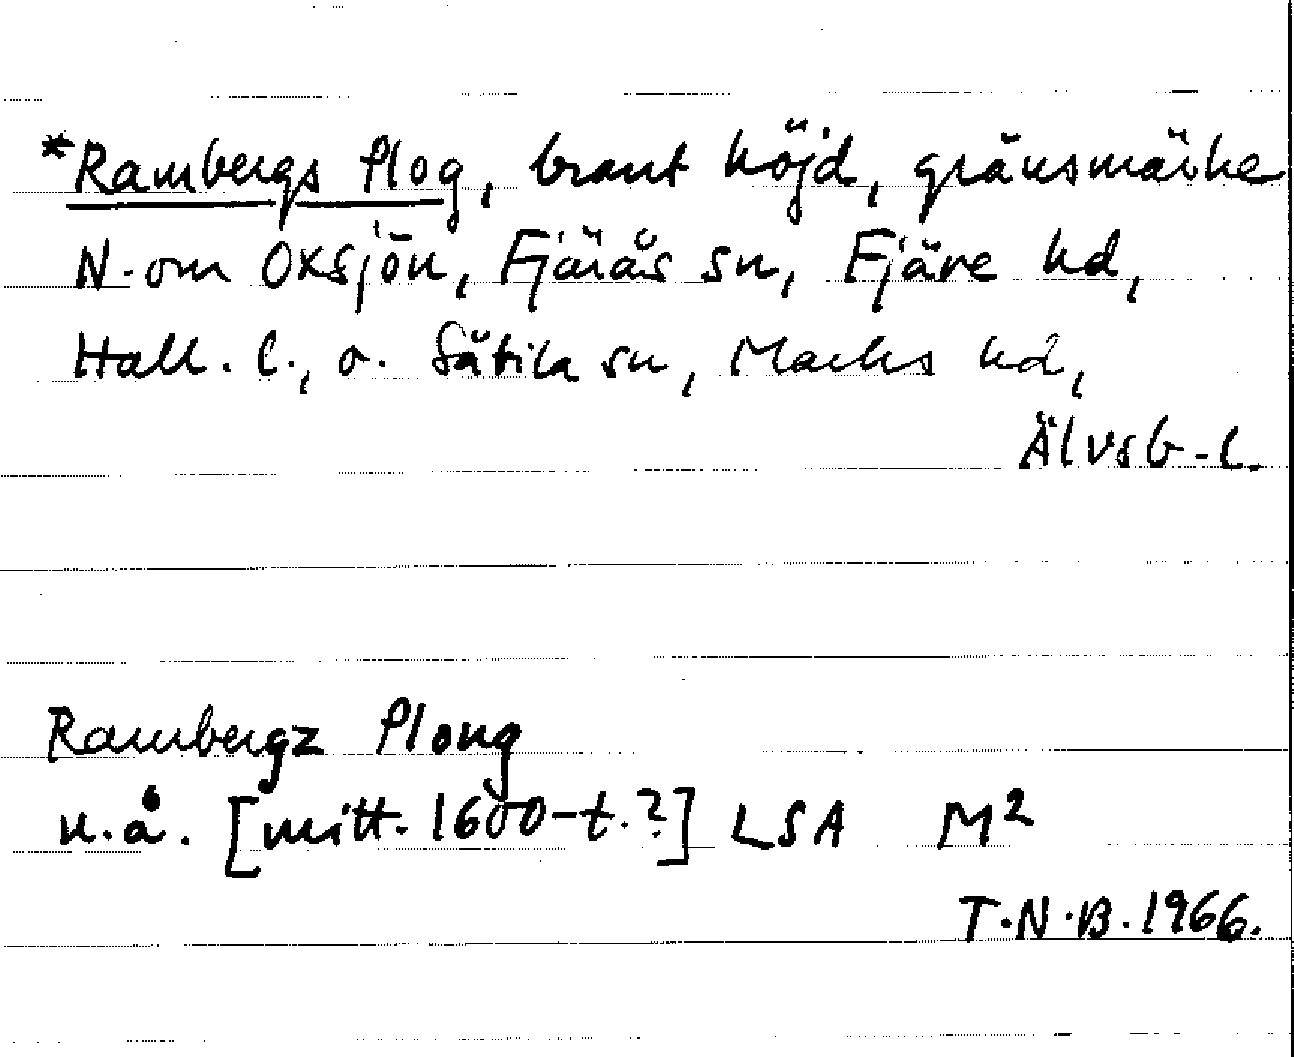 *Rambergs Plog, brant höjd, gränsmärke
N. om Oxsjön, Fjärås sn, Fjäre hd,
Hall. l., o. Sätila sn, Marks hd,
Älvsb. l.
Rambergz Ploug
u.å. [mitt. 1600-t.?] LSA M²
T.N.B. 1966.